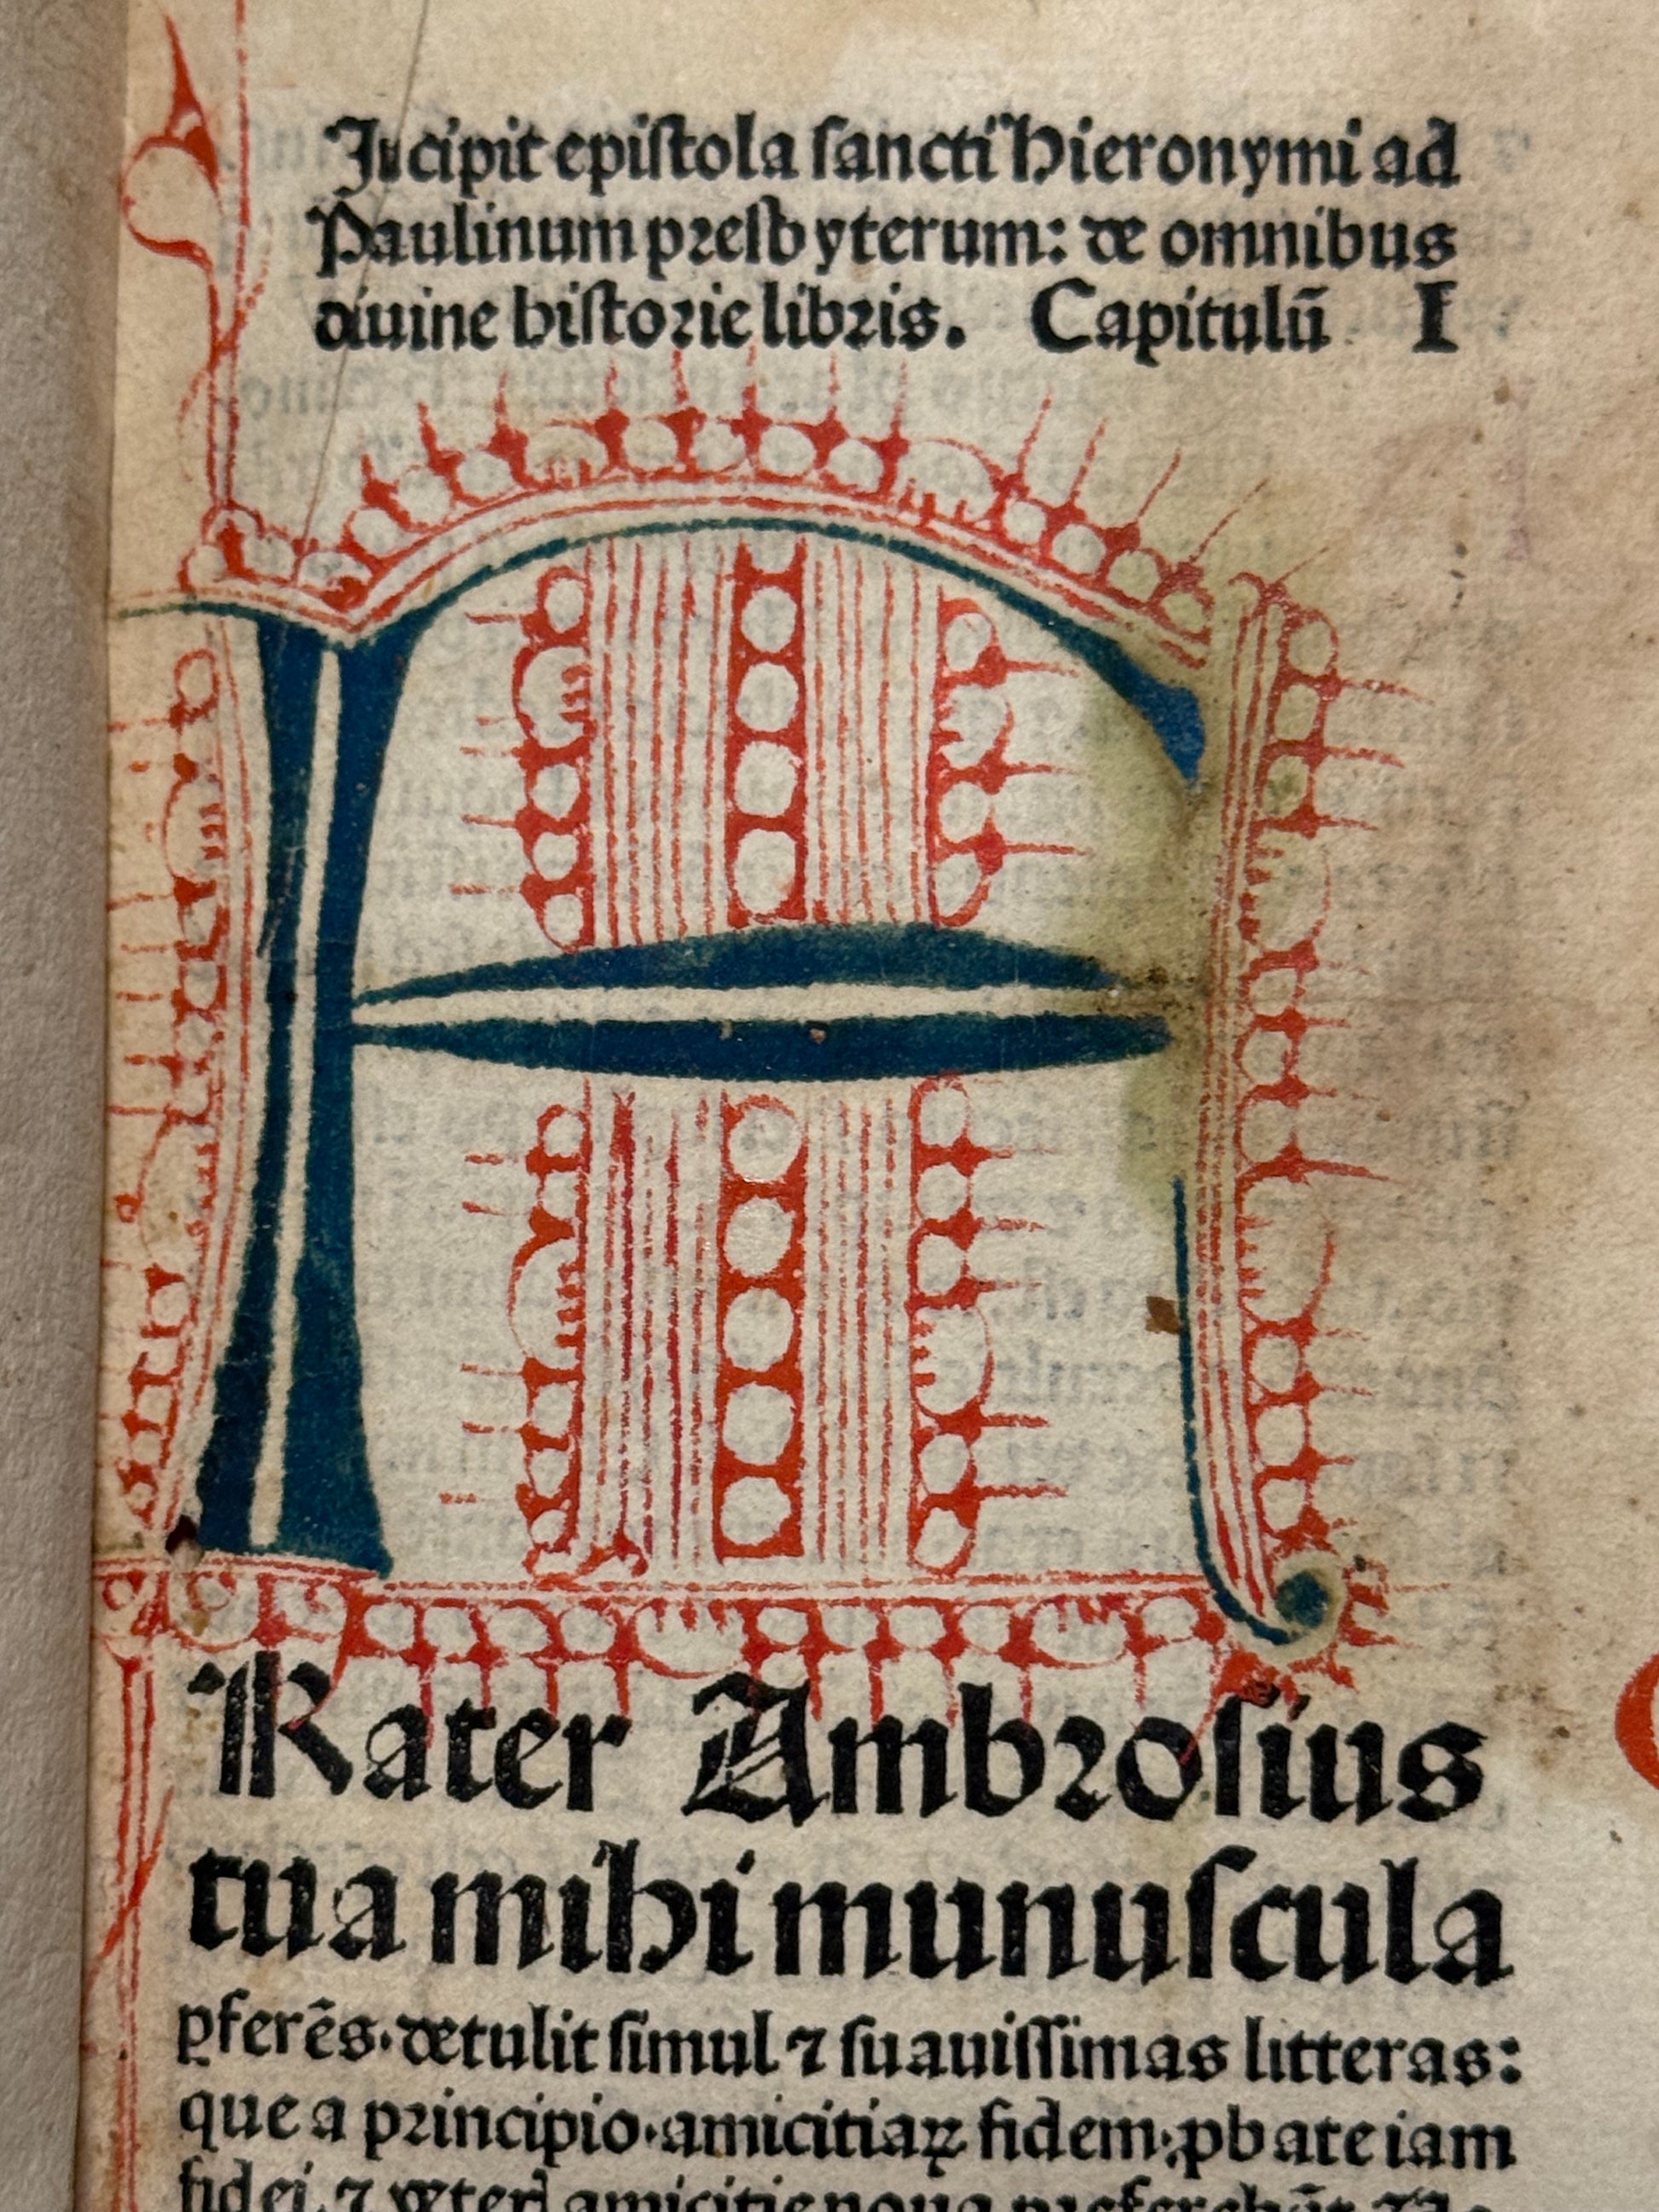 Incipit epiſtola ſancti Hieronymi ad
Paulinum preſbyterum: de omnibus
diuine hiſtorie libris. Capitulū I
F
Rater Ambroſius
tua mihi munuſcula
ꝑferēs·detulit ſimul ⁊ ſuauiſſimas litteras:
que a principio·amicitiaꝝ fidem·ꝓbate iam
fidei ⁊ amicitie noua